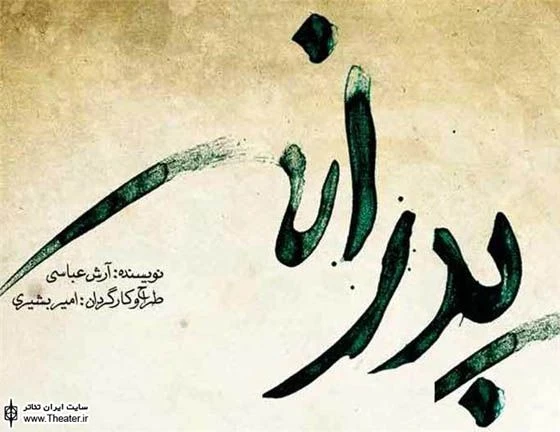 پدرانه
نویسنده: آرش عباسی
طراح و کارگردان: امیر بشیری
سایت ایران تئاتر
www.Theater.ir